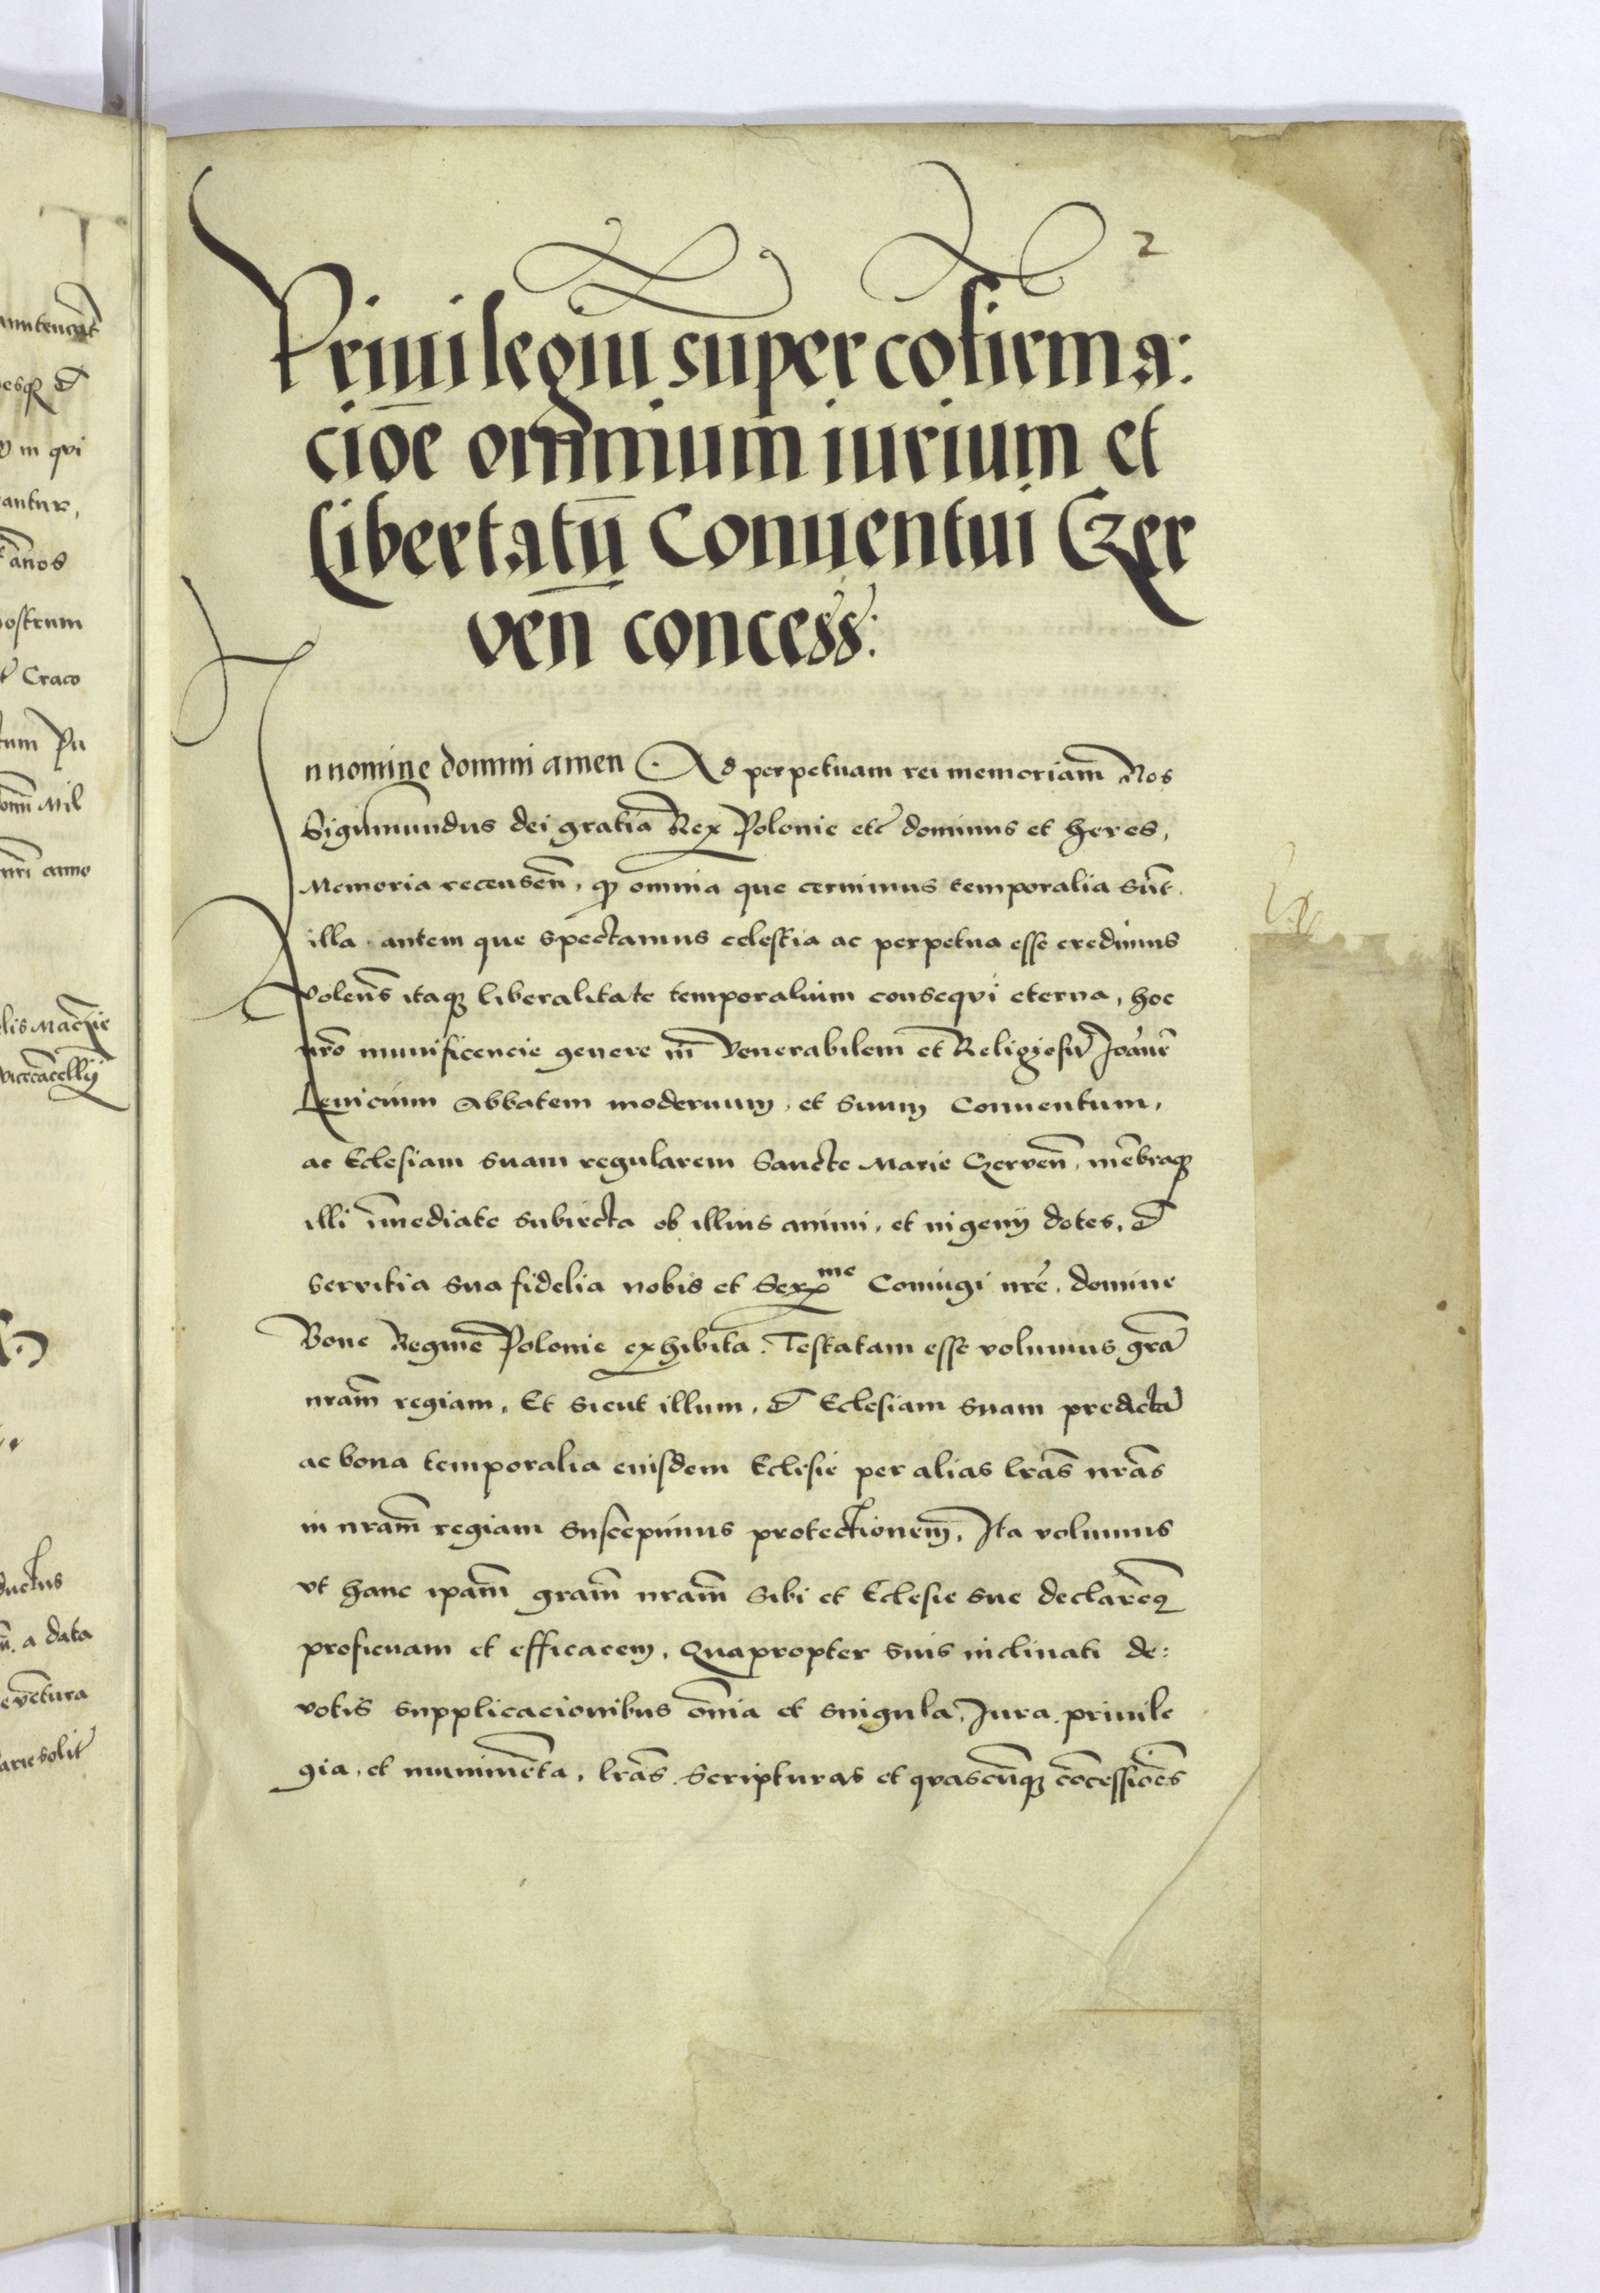 2
Priuilegiū super cōfirma:
ciōe omnium iurium et
Libertatū Conuentui Czer
ven̄ concess:
In nomine domini amen. Ad perpetuam rei memoriam̄ Nos
Sigismundus dei gratia Rex Polonie etc̄ dominus et heres,
Memoria recensen̄, qꝫ omnia que cernimus temporalia sūt
illa autem que spectamus celestia ac perpetua esse credimus
volen̄s itaqꝫ liberalitate temporalium consequi eterna, hoc
nrō munificencie genere in̄ Venerabilem et Religiosū Joānē
Lenicium Abbatem modernum, et suum Conuentum,
ac Eclesiam suam regularem Sancte Marie Czerven̄, mēbraqꝫ
illi īmediate subiecta ob illius animi, et ingenij dotes, et
servitia sua fidelia nobis et Serme Coniugi nrē, domine
Bone Regine Polonie exhibita. Testatam esse volumus grā
nram̄ regiam, Et sicut illum, et Eclesiam suam predictā
ac bona temporalia eiusdem Eclesie per alias lrās nrās
in nram̄ regiam suscepimus protectionem̄, Ita volumus
vt hanc ipam̄ gram̄ nram̄ sibi et Eclesie sue declarēqꝫ
proficuam et efficacem, Quapropter suis inclinati de:
votis supplicacionibus ōmia et singula, Jura, priuile
gia, et munimēta, lrās Scripturas et quascūqꝫ cōcessiōes
mutencāt
esqꝫ et
in qui
antur,
annos
ostrum
Craco
tum Pu
Mil
nri anno
lis Macieie
vicecācellij
ductus
a data
evētura